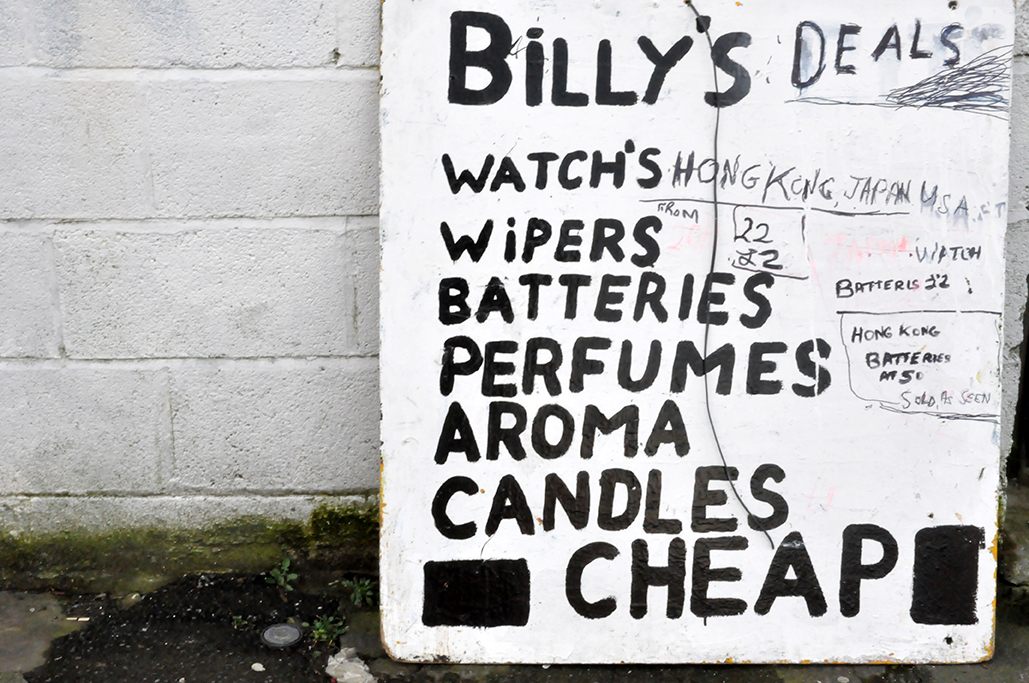 BiLLY'S DEALS
WATCH'S HONG KONG, JAPAN USA
FROM
22
£2
WiPERS
WATCH
BATTERIES
BATTERIS £2
PERFUMES
HONG KONG
BATTERIES
AT 50
SOLD AS SEEN
AROMA
CANDLES
CHEAP